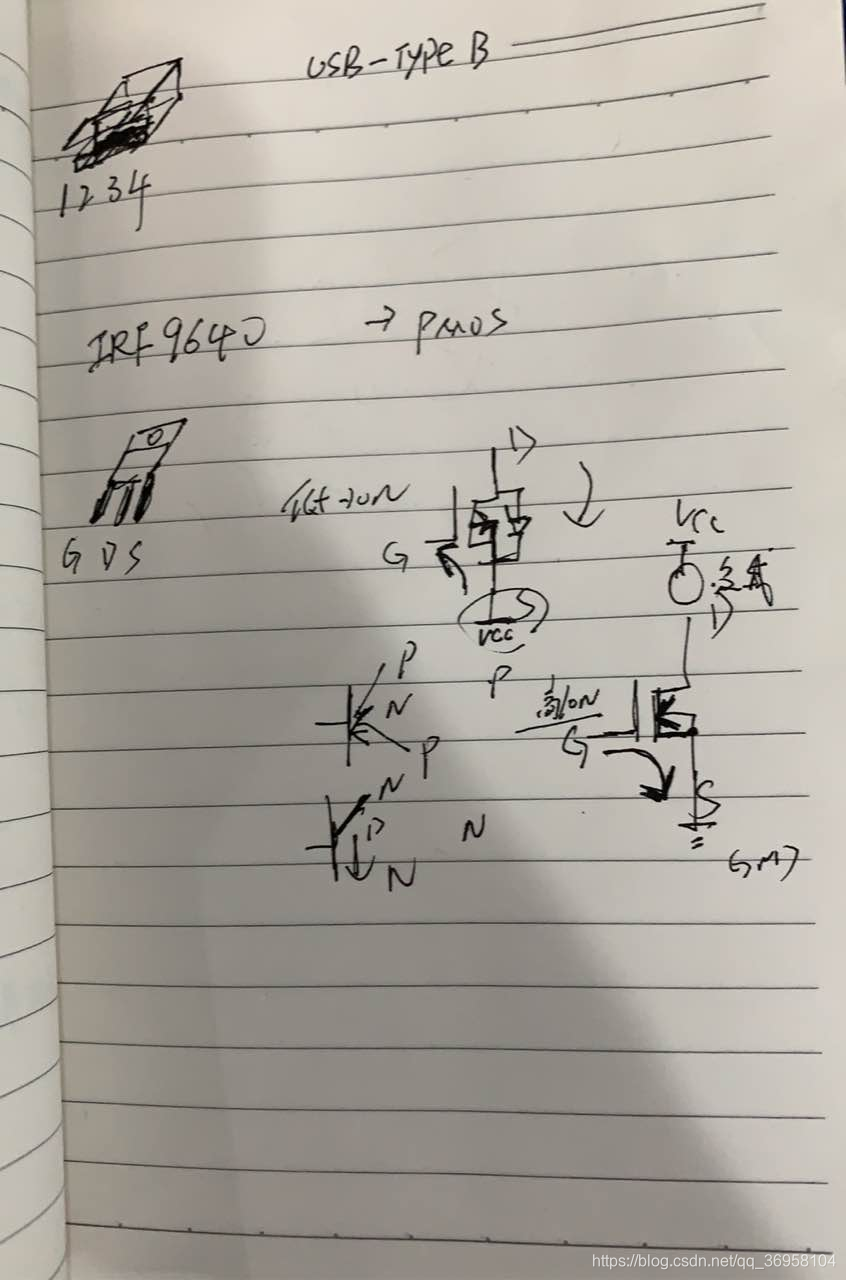 USB-Type B
1234
IRF9640 → PMOS
G D S
→ON
D
G
S
VCC
P
VCC
D
高/ON
G
S
GND
P
N
P
N
P
N
N
https://blog.csdn.net/qq_36958104